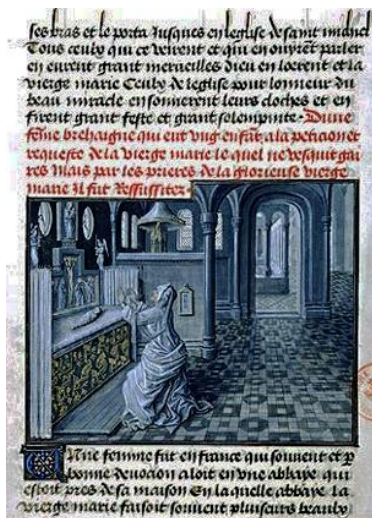 ses bras et le porta Jusques en leglise de saint michiel
Tous ceulx qui ce veirent et qui en ouyrent parler
en eurent grant merueilles dieu en loerent et la
vierge marie Ceulx de leglise pour lonneur du
beau miracle en sonnerent leurs cloches et en
firent grant feste et grant solempnite. Dune
feme brehaigne qui eut vng enfat a la peticion et
requeste de la vierge marie le quel ne vesquit gai
res Mais par les prieres de la glorieuse vierge
marie Il fut Ressussitez
Une femme fut en france qui souuent et p
bonne deuocion aloit en vne abbaye qui
estoit pres de sa maison En la quelle abbaye la
vierge marie faisoit souuent pluseurs beaulx